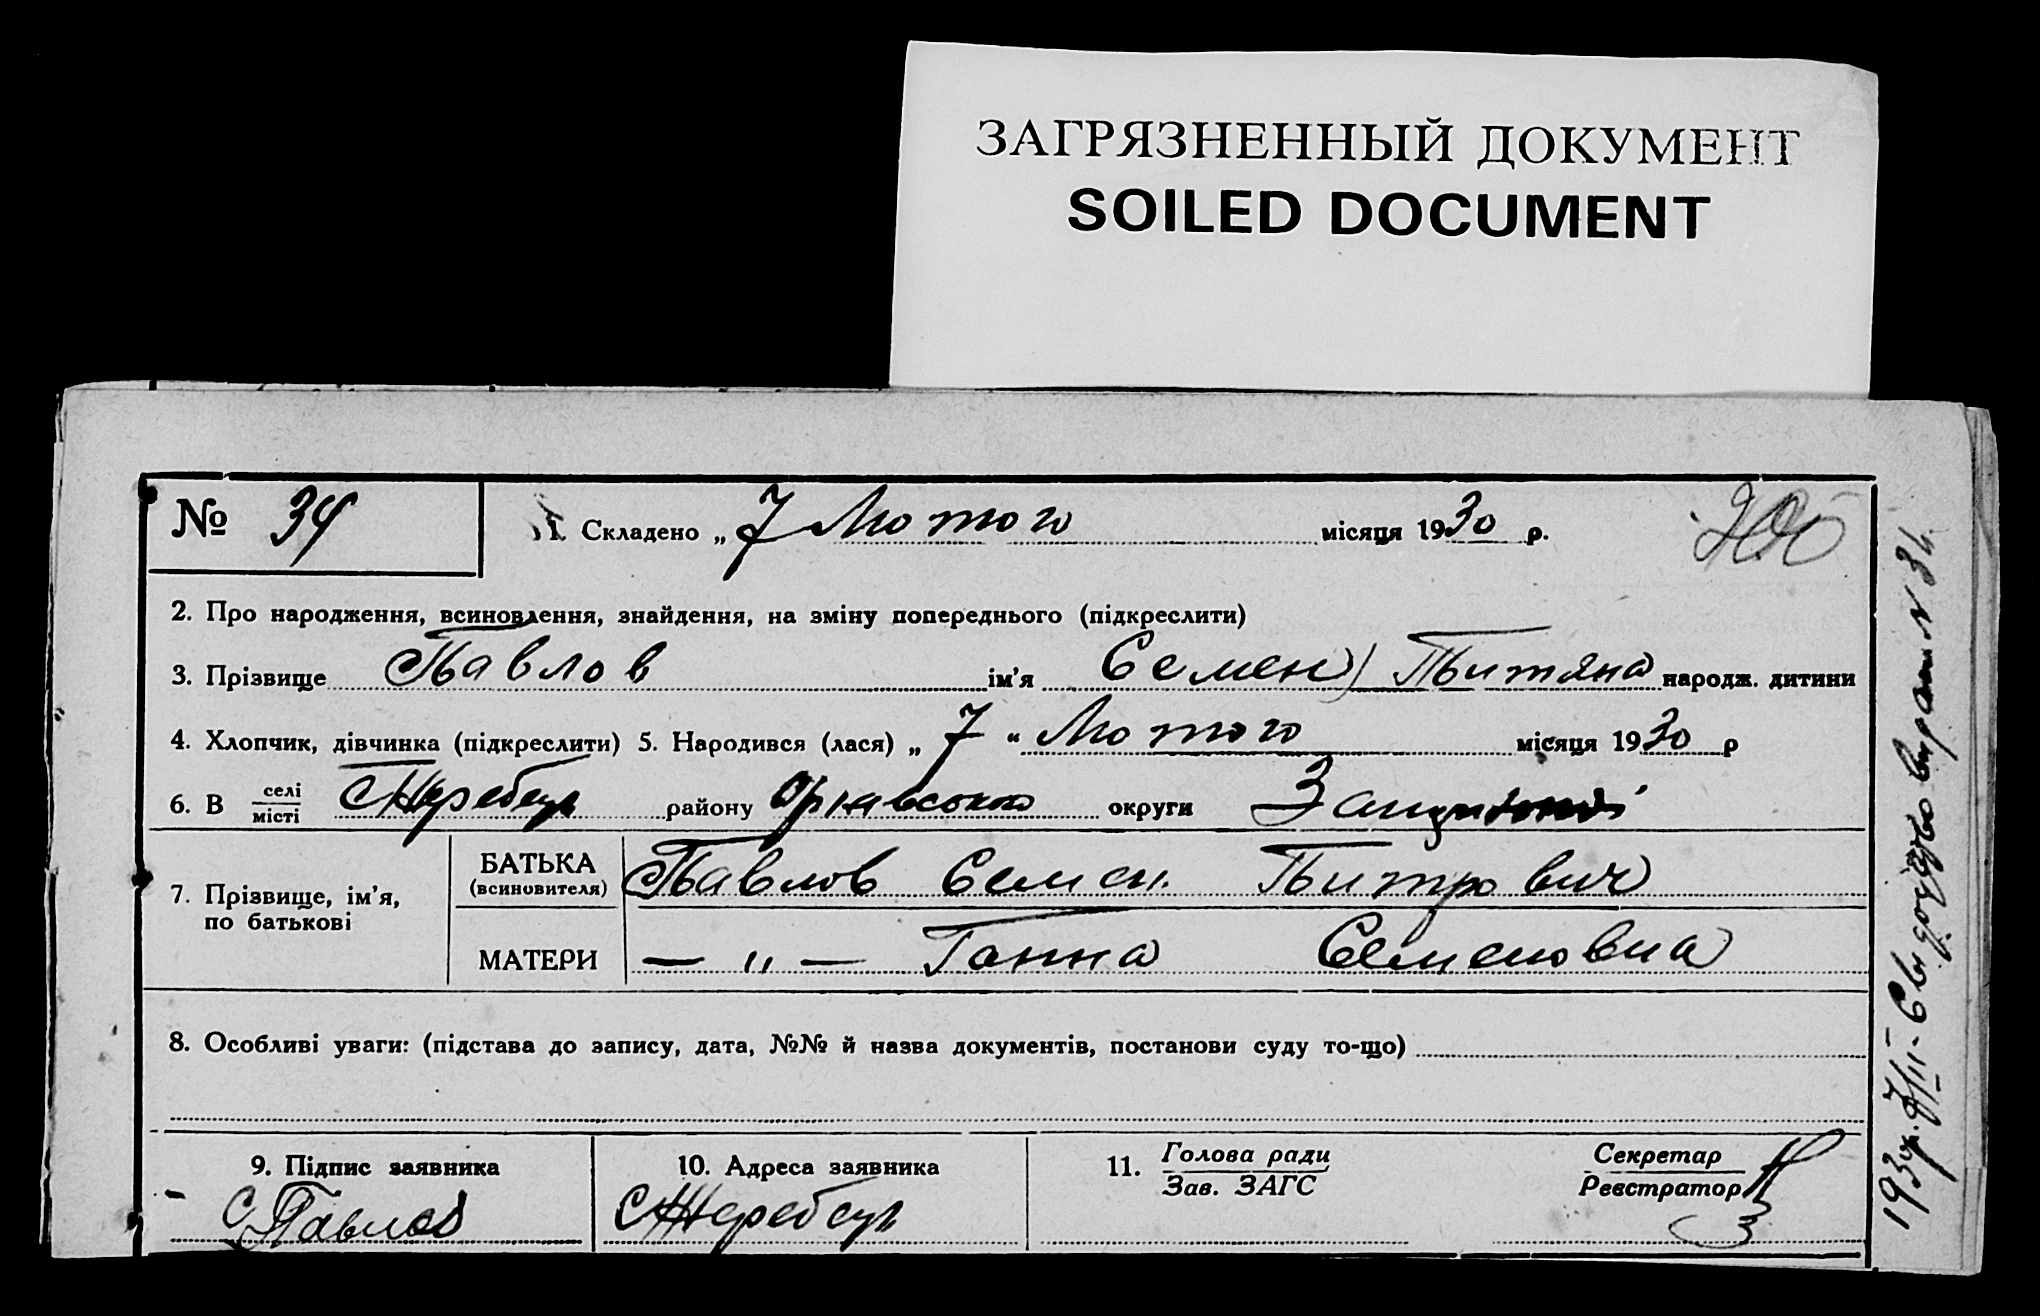 ЗАГРЯЗНЕННЫЙ ДОКУМЕНТ
SOILED DOCUMENT
№ 34
1. Складено „ 7 Лютого місяця 1930 р.
2. Про народження, всиновлення, знайдення, на зміну попереднього (підкреслити)
3. Прізвище Павлов ім'я Семен народж. дитини
4. Хлопчик, дівчинка (підкреслити) 5. Народився (лася) „ 7 “ Лютого місяця 1930 р
6. В селі/місті Жеребець району округи
7. Прізвище, ім'я, по батькові
БАТЬКА (всиновителя) Павлов Семен Питрович
МАТЕРИ — „ — Ганна Семеновна
8. Особливі уваги: (підстава до запису, дата, №№ й назва документів, постанови суду то-що)
9. Підпис заявника
Павлов
10. Адреса заявника
С Жеребець
11. Голова ради
Зав. ЗАГС
Секретар
Реєстратор
1930р. 7/II - Свидоцтво видано N 34.